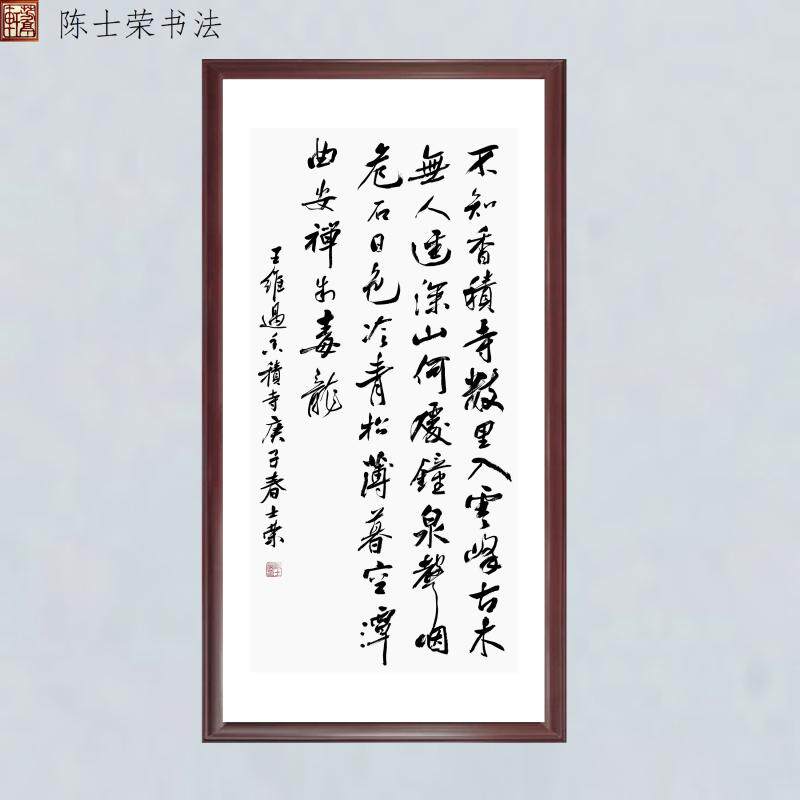 陈士荣书法
不知香積寺数里入雲峰古木
無人迳深山何處鐘泉聲咽
危石日色冷青松薄暮空潭
曲安禪制毒龍
王維過香積寺庚子春士荣